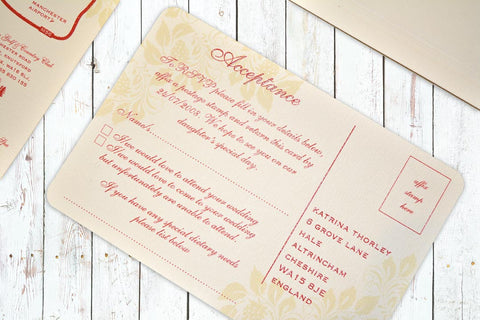 MANCHESTER
AIRPORT
Golf & Country Club
CHESTER ROAD
KNUTSFORD
Acceptance
To RSVP please fill in your details below,
affix a postage stamp and return this card by
24/07/2009. We hope to see you on our
daughter's special day.
Name/s
I/we would love to attend your wedding
I/we would love to come to your wedding
but unfortunately are unable to attend.
If you have any special dietary needs
please list below
affix
stamp
here
KATRINA THORLEY
8 GROVE LANE
HALE
ALTRINCHAM
CHESHIRE
WA15 8JZ
ENGLAND